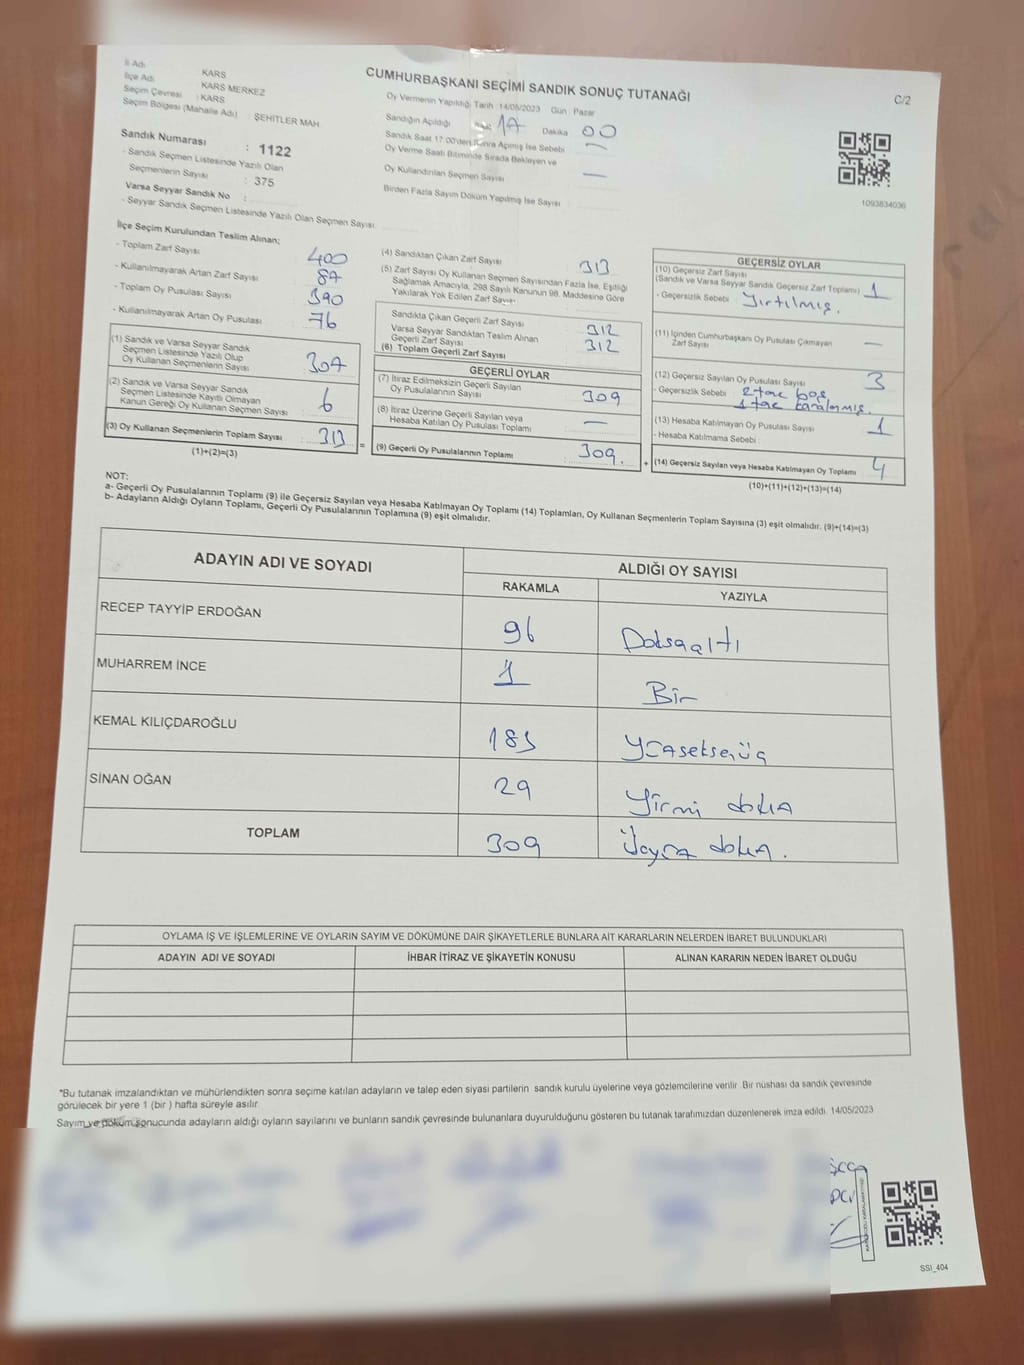 CUMHURBAŞKANI SEÇİMİ SANDIK SONUÇ TUTANAĞI
C/2
İl Adı KARS
İlçe Adı KARS MERKEZ
Seçim Çevresi : KARS
Seçim Bölgesi (Mahalle Adı) : ŞEHİTLER MAH
Sandık Numarası : 1122
- Sandık Seçmen Listesinde Yazılı Olan
Seçmenlerin Sayısı : 375
Varsa Seyyar Sandık No :
- Seyyar Sandık Seçmen Listesinde Yazılı Olan Seçmen Sayısı:
Oy Vermenin Yapıldığı Tarih : 14/05/2023 Gün : Pazar
Sandığın Açıldığı 17 Dakika 00
Sandık Saat 17:00'den Sonra Açmış İse Sebebi —
Oy Verme Saati Bitiminde Sırada Bekleyen ve
Oy Kullandırılan Seçmen Sayısı —
Birden Fazla Sayım Döküm Yapılmış İse Sayısı :
1093834036
İlçe Seçim Kurulundan Teslim Alınan;
- Toplam Zarf Sayısı : 400
- Kullanılmayarak Artan Zarf Sayısı : 87
- Toplam Oy Pusulası Sayısı : 390
- Kullanılmayarak Artan Oy Pusulası : 76
(1) Sandık ve Varsa Seyyar Sandık
Seçmen Listesinde Yazılı Olup
Oy Kullanan Seçmenlerin Sayısı : 307
(2) Sandık ve Varsa Seyyar Sandık
Seçmen Listesinde Kayıtlı Olmayan
Kanun Gereği Oy Kullanan Seçmen Sayısı : 6
(3) Oy Kullanan Seçmenlerin Toplam Sayısı : 313 =
(1)+(2)=(3)
(4) Sandıktan Çıkan Zarf Sayısı : 313
(5) Zarf Sayısı Oy Kullanan Seçmen Sayısından Fazla İse, Eşitliği
Sağlamak Amacıyla, 298 Sayılı Kanunun 98. Maddesine Göre
Yakılarak Yok Edilen Zarf Sayısı
Sandıkta Çıkan Geçerli Zarf Sayısı : 312
Varsa Seyyar Sandıktan Teslim Alınan
Geçerli Zarf Sayısı
(6) Toplam Geçerli Zarf Sayısı : 312
GEÇERLİ OYLAR
(7) İtiraz Edilmeksizin Geçerli Sayılan
Oy Pusulalarının Sayısı : 309
(8) İtiraz Üzerine Geçerli Sayılan veya
Hesaba Katılan Oy Pusulası Toplamı : —
(9) Geçerli Oy Pusulalarının Toplamı : 309. +
GEÇERSİZ OYLAR
(10) Geçersiz Zarf Sayısı
(Sandık ve Varsa Seyyar Sandık Geçersiz Zarf Toplamı) : 1
- Geçersizlik Sebebi : Yırtılmış.
(11) İçinden Cumhurbaşkanı Oy Pusulası Çıkmayan
Zarf Sayısı —
(12) Geçersiz Sayılan Oy Pusulası Sayısı : 3
- Geçersizlik Sebebi : 2 tane boş
1 tane karalanmış.
(13) Hesaba Katılmayan Oy Pusulası Sayısı : 1
- Hesaba Katılmama Sebebi :
(14) Geçersiz Sayılan veya Hesaba Katılmayan Oy Toplamı 4
(10)+(11)+(12)+(13)=(14)
NOT:
a- Geçerli Oy Pusulalarının Toplamı (9) ile Geçersiz Sayılan veya Hesaba Katılmayan Oy Toplamı (14) Toplamları, Oy Kullanan Seçmenlerin Toplam Sayısına (3) eşit olmalıdır. (9)+(14)=(3)
b- Adayların Aldığı Oyların Toplamı, Geçerli Oy Pusulalarının Toplamına (9) eşit olmalıdır.
ADAYIN ADI VE SOYADI
ALDIĞI OY SAYISI
RAKAMLA YAZIYLA
RECEP TAYYİP ERDOĞAN 96 Doksaaltı
MUHARREM İNCE 1 Bir
KEMAL KILIÇDAROĞLU 183
SİNAN OĞAN 29 Yirmi dokuz
TOPLAM 309 dokuz.
OYLAMA İŞ VE İŞLEMLERİNE VE OYLARIN SAYIM VE DÖKÜMÜNE DAİR ŞİKAYETLERLE BUNLARA AİT KARARLARIN NELERDEN İBARET BULUNDUKLARI
ADAYIN ADI VE SOYADI İHBAR İTİRAZ VE ŞİKAYETİN KONUSU ALINAN KARARIN NEDEN İBARET OLDUĞU
*Bu tutanak imzalandıktan ve mühürlendikten sonra seçime katılan adayların ve talep eden siyasi partilerin sandık kurulu üyelerine veya gözlemcilerine verilir. Bir nüshası da sandık çevresinde
görülecek bir yere 1 (bir ) hafta süreyle asılır.
Sayım ve döküm sonucunda adayların aldığı oyların sayılarını ve bunların sandık çevresinde bulunanlara duyurulduğunu gösteren bu tutanak tarafımızdan düzenlenerek imza edildi. 14/05/2023
SSI_404